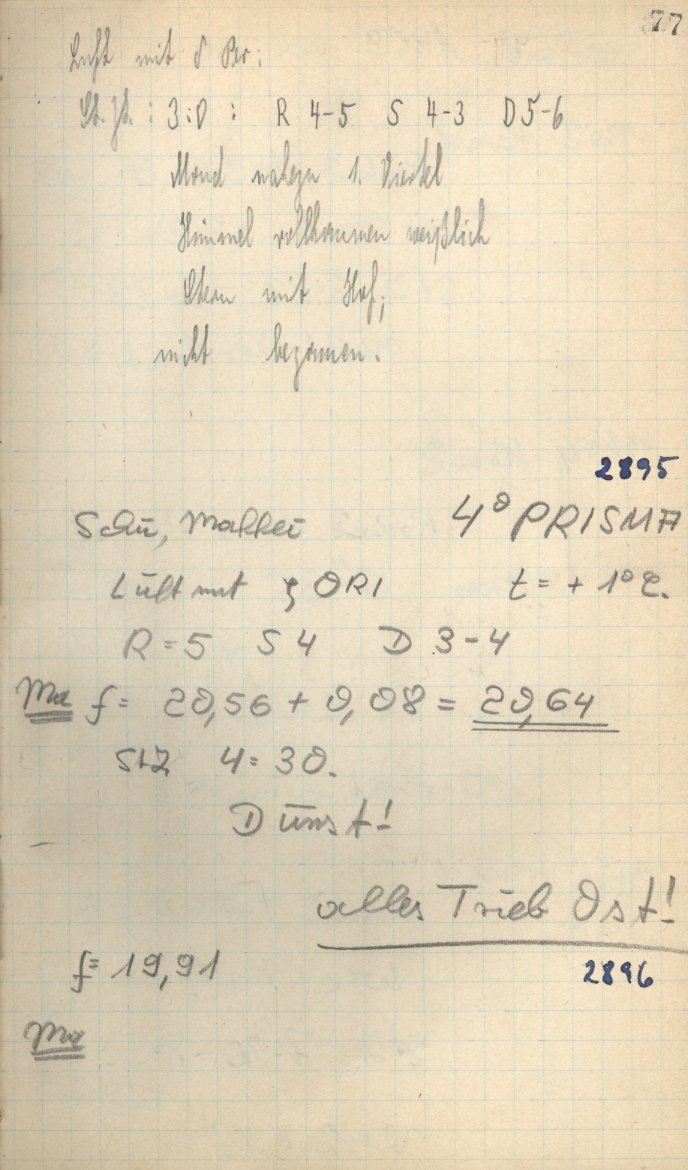 77
Luft mit δ Per:
St. Zt.: 3:0 : R 4-5 S 4-3 D 5-6
Mond nahezu 1. Viertel
Himmel vollkommen weißlich
Stern mit Hof;
nicht begonnen.
2895
Schü, 4° PRISMA
Luft mit ζ ORI t = + 1° C.
R = 5 S 4 D 3-4
Ma f = 20,56 + 0,08 = 20,64
StZ 4:30.
Dunst!
alles Trieb Ost!
f = 19,91
2896
Ma